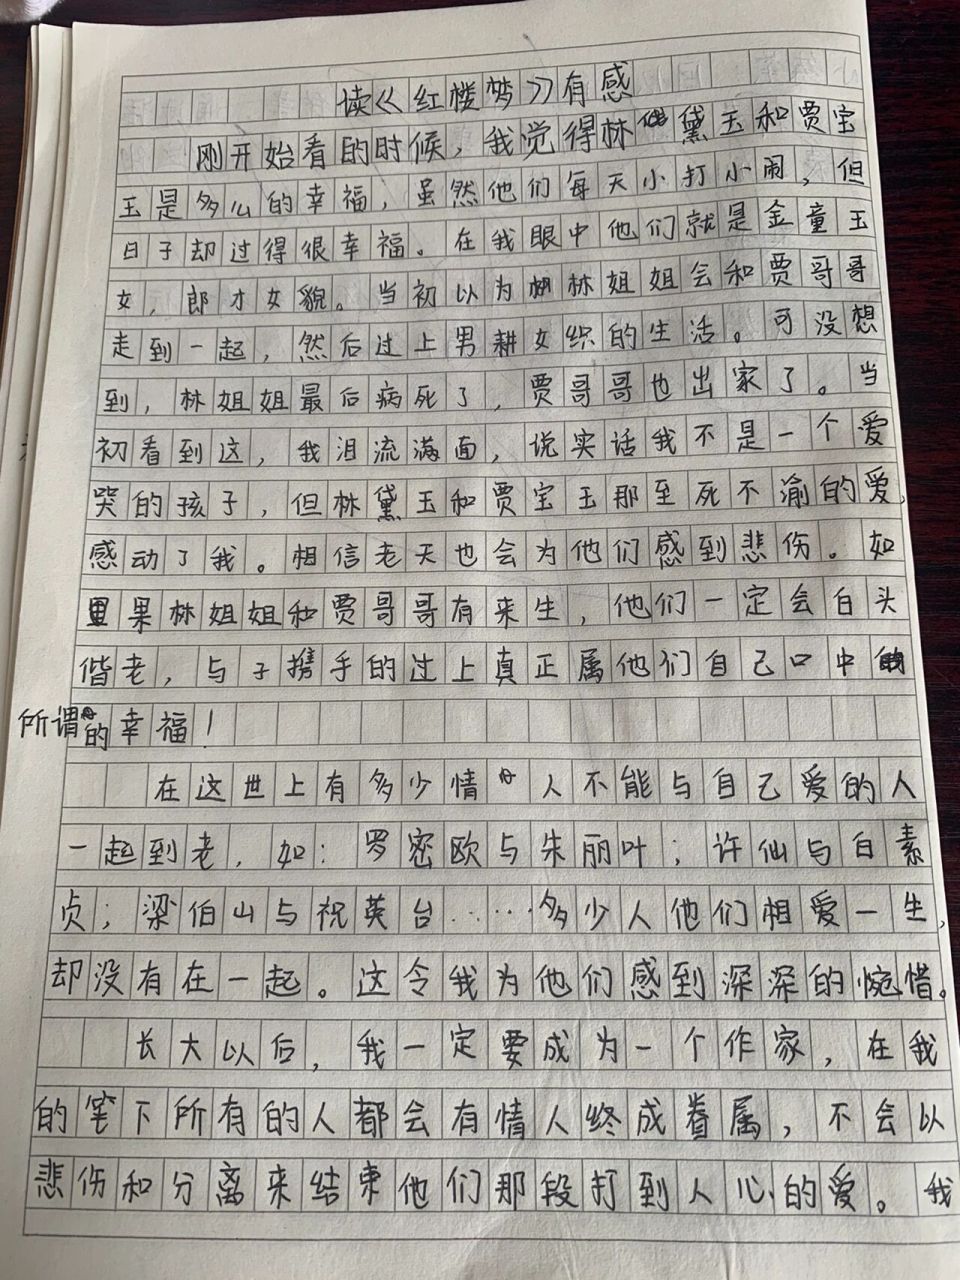 读《红楼梦》有感
刚开始看的时候，我觉得林黛玉和贾宝
玉是多么的幸福，虽然他们每天小打小闹，但
日子却过得很幸福。在我眼中他们就是金童玉
女，郎才女貌。当初以为林姐姐会和贾哥哥
走到一起，然后过上男耕女织的生活。可没想
到，林姐姐最后病死了，贾哥哥也出家了。当
初看到这，我泪流满面，说实话我不是一个爱
哭的孩子，但林黛玉和贾宝玉那至死不渝的爱，
感动了我。相信老天也会为他们感到悲伤。如
果林姐姐和贾哥哥有来生，他们一定会白头
偕老，与子携手的过上真正属他们自己口中
所谓的幸福！
在这世上有多少情人不能与自己爱的人
一起到老，如：罗密欧与朱丽叶；许仙与白素
贞；梁伯山与祝英台……多少人他们相爱一生，
却没有在一起。这令我为他们感到深深的惋惜。
长大以后，我一定要成为一个作家，在我
的笔下所有的人都会有情人终成眷属，不会以
悲伤和分离来结束他们那段打到人心的爱。我